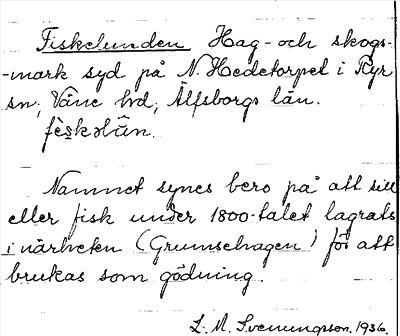 Fiskelunden Hag- och skogs-
-mark syd på N. Hedetorpet i Ryr
sn, Väne hd, Älfsborgs län.
fèskəlūn.
Namnet synes bero på att sill
eller fisk under 1800-talet lagrats
i närheten (Grumsehagen) för att
brukas som gödning.
L. M. Svenungsson. 1936.